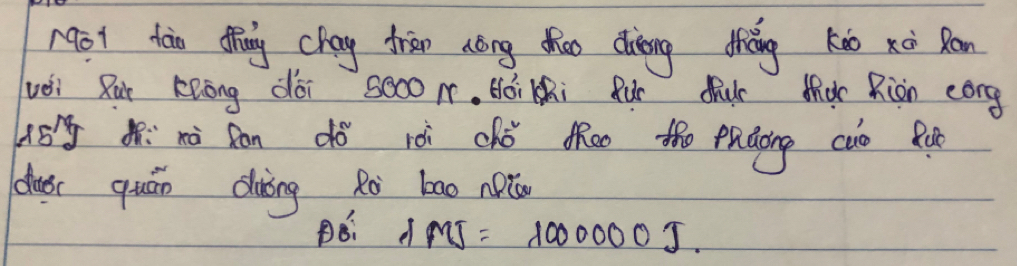 Một tàu thủy chạy trên sông theo đường thẳng kéo xà lan
với lực không đổi 5000 N. Hỏi khi lực thực thực hiện công
15 MJ thì xà lan dã rời chỗ theo tho phương của lực
được quãn đường là bao nhiêu
Đổi 1 MJ = 1000000 J.